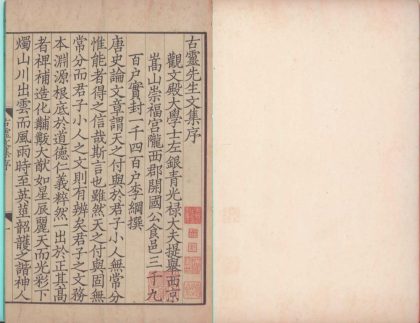 古靈先生文集序
觀文殿大學士左銀青光祿大夫提舉西京
嵩山崇福宮隴西郡開國公食邑三千九
百戶實封一千四百戶李綱撰
唐史論文章謂天之付與於君子小人無常分
惟能者得之信哉斯言也雖然天之付與固無
常分而君子小人之文則有辨矣君子之文務
本淵源根底於道德仁義粹然一出於正其高
者裨補造化黼黻大猷如星辰麗天而光彩下
燭山川出雲而風雨時至英莖韶濩之諧神人
古靈文集序
一